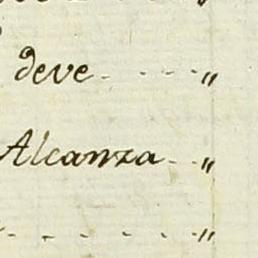 deve . . . . . "
Alcanza . . "
. . . . . "